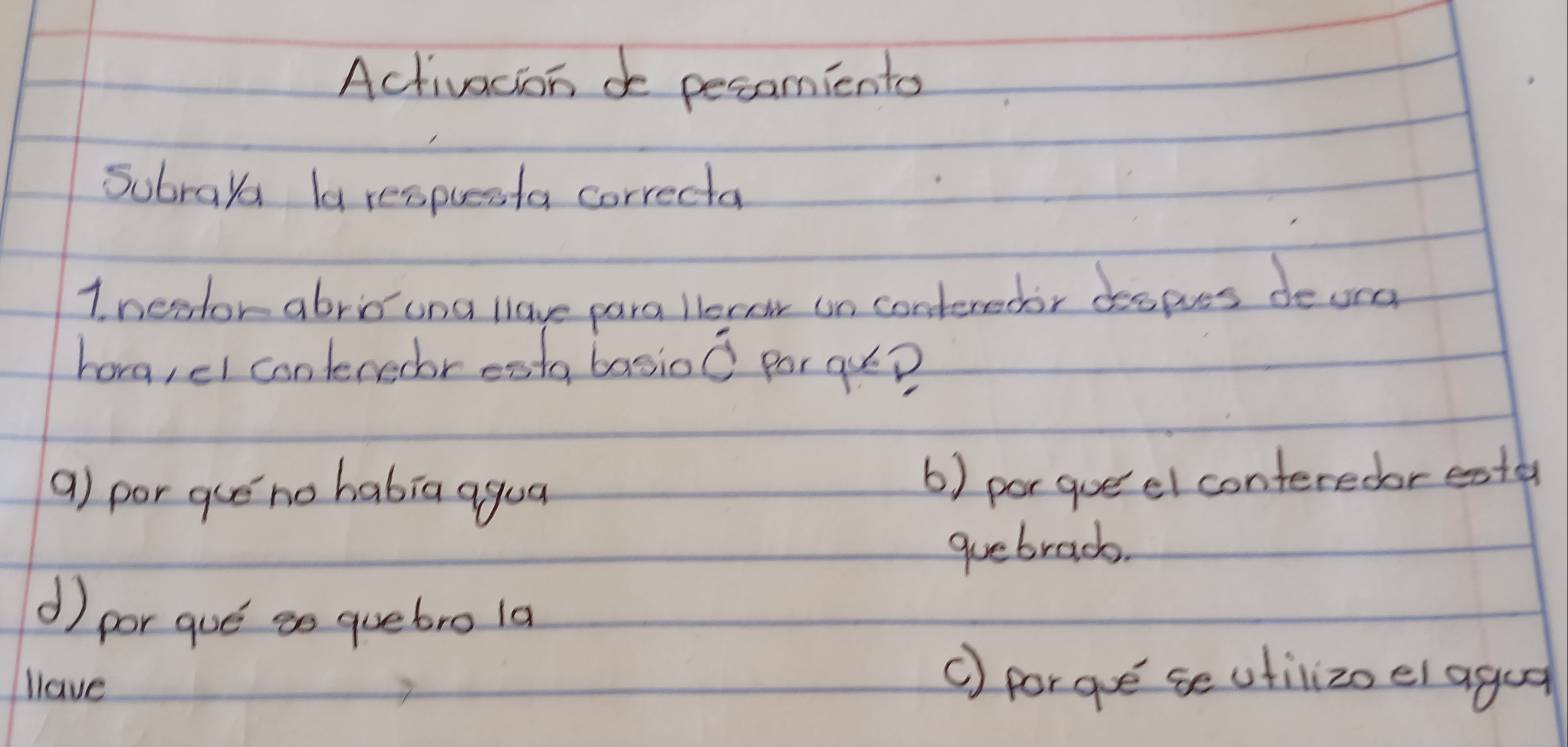 Activación de pesamiento
Subraya la respuesta correcta
1. nestor abrió una llave para llenar un contenedor despues de una
hora, el contenedor esta basio ¿ por qué?
a) por qué no había agua
b) por que el contenedor esta
quebrado.
d) por qué se quebro la
llave
c) por qué se utilizo el agua